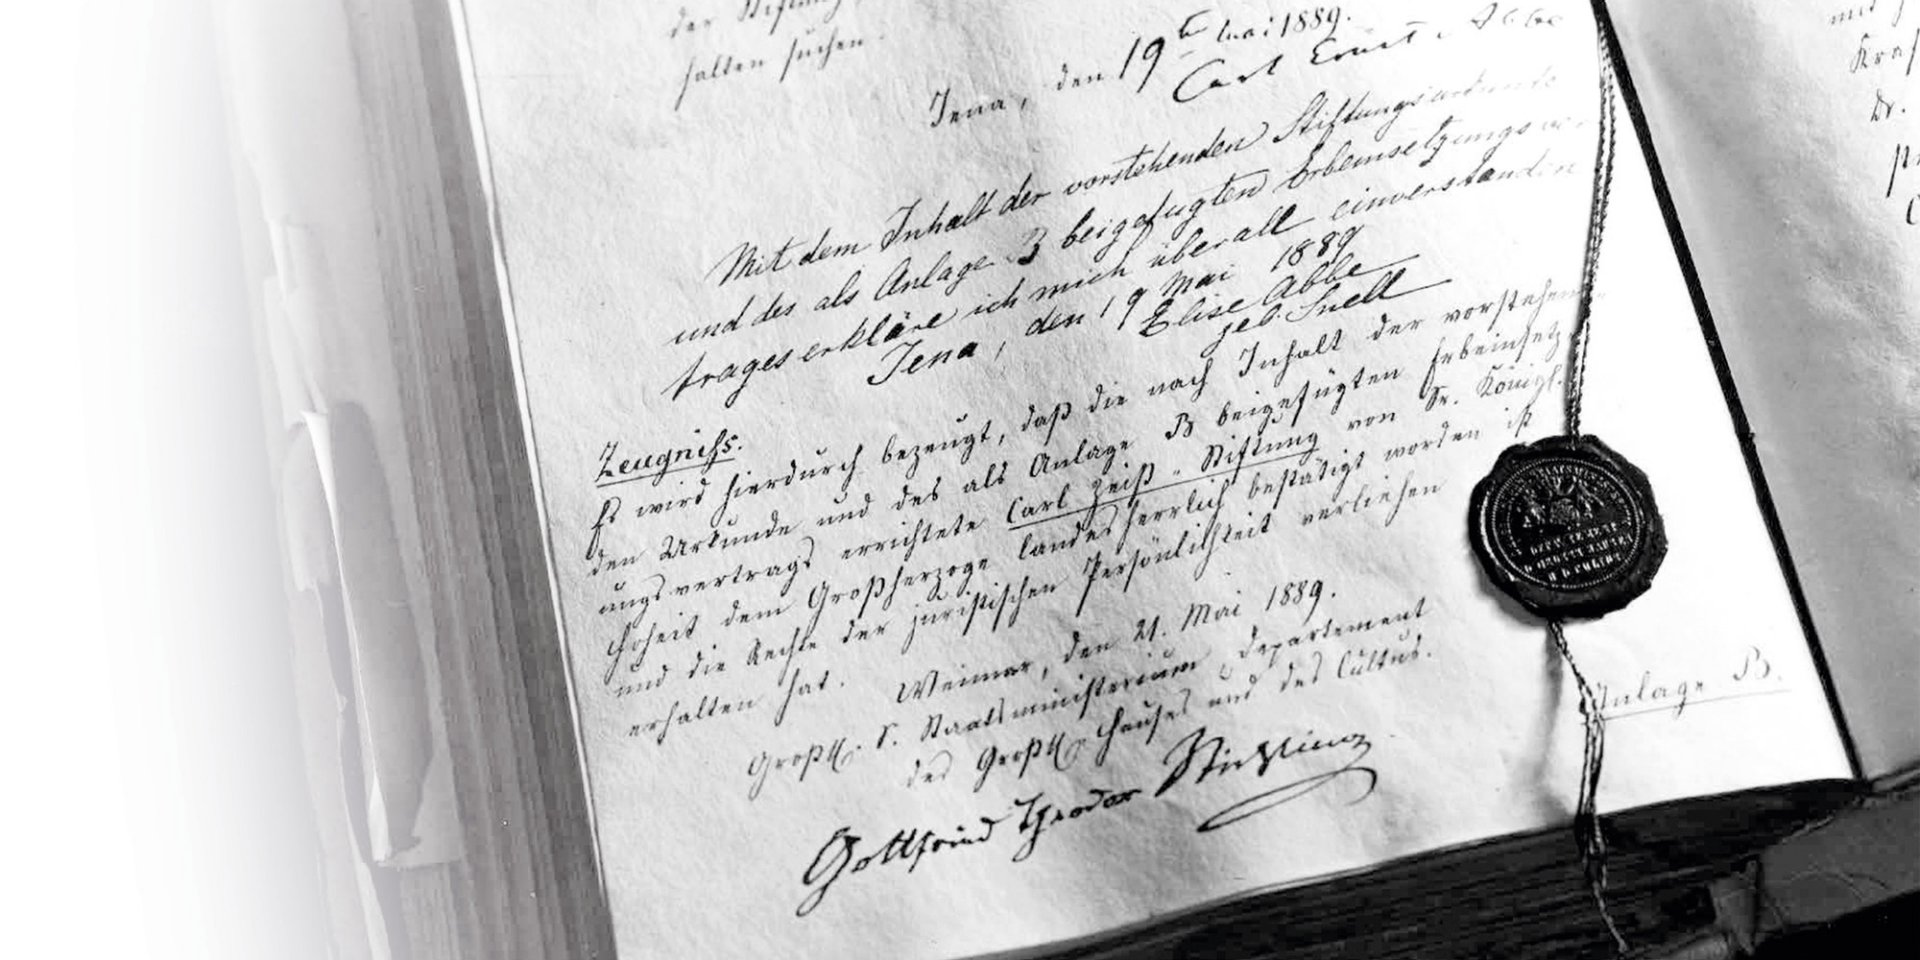 der Stiftung
halten suchen.
Jena, den 19t Mai 1889.
Carl Ernst Abbe
Mit dem Inhalt der vorstehenden Stiftungsurkunde
und des als Anlage B beigefügten Erbeinsetzungsver
trages erkläre ich mich überall einverstanden
Jena, den 19 Mai 1889
Elise Abbe
geb. Snell
Zeugniß.
Es wird hierdurch bezeugt, daß die nach Inhalt der vorstehen-
den Urkunde und des als Anlage B beigefügten Erbeinsetz
ungsvertrags errichtete Carl Zeiß-Stiftung von Sr. Königl.
Hoheit dem Großherzoge landesherrlich bestätigt worden ist
und die Rechte der juristischen Persönlichkeit verliehen
erhalten hat. Weimar, den 21. Mai 1889.
Großh. S. Staatsministerium, Departement
des Großh. Hauses und des Cultus.
Gottfried Theodor Stichling
Anlage B.
Dr.